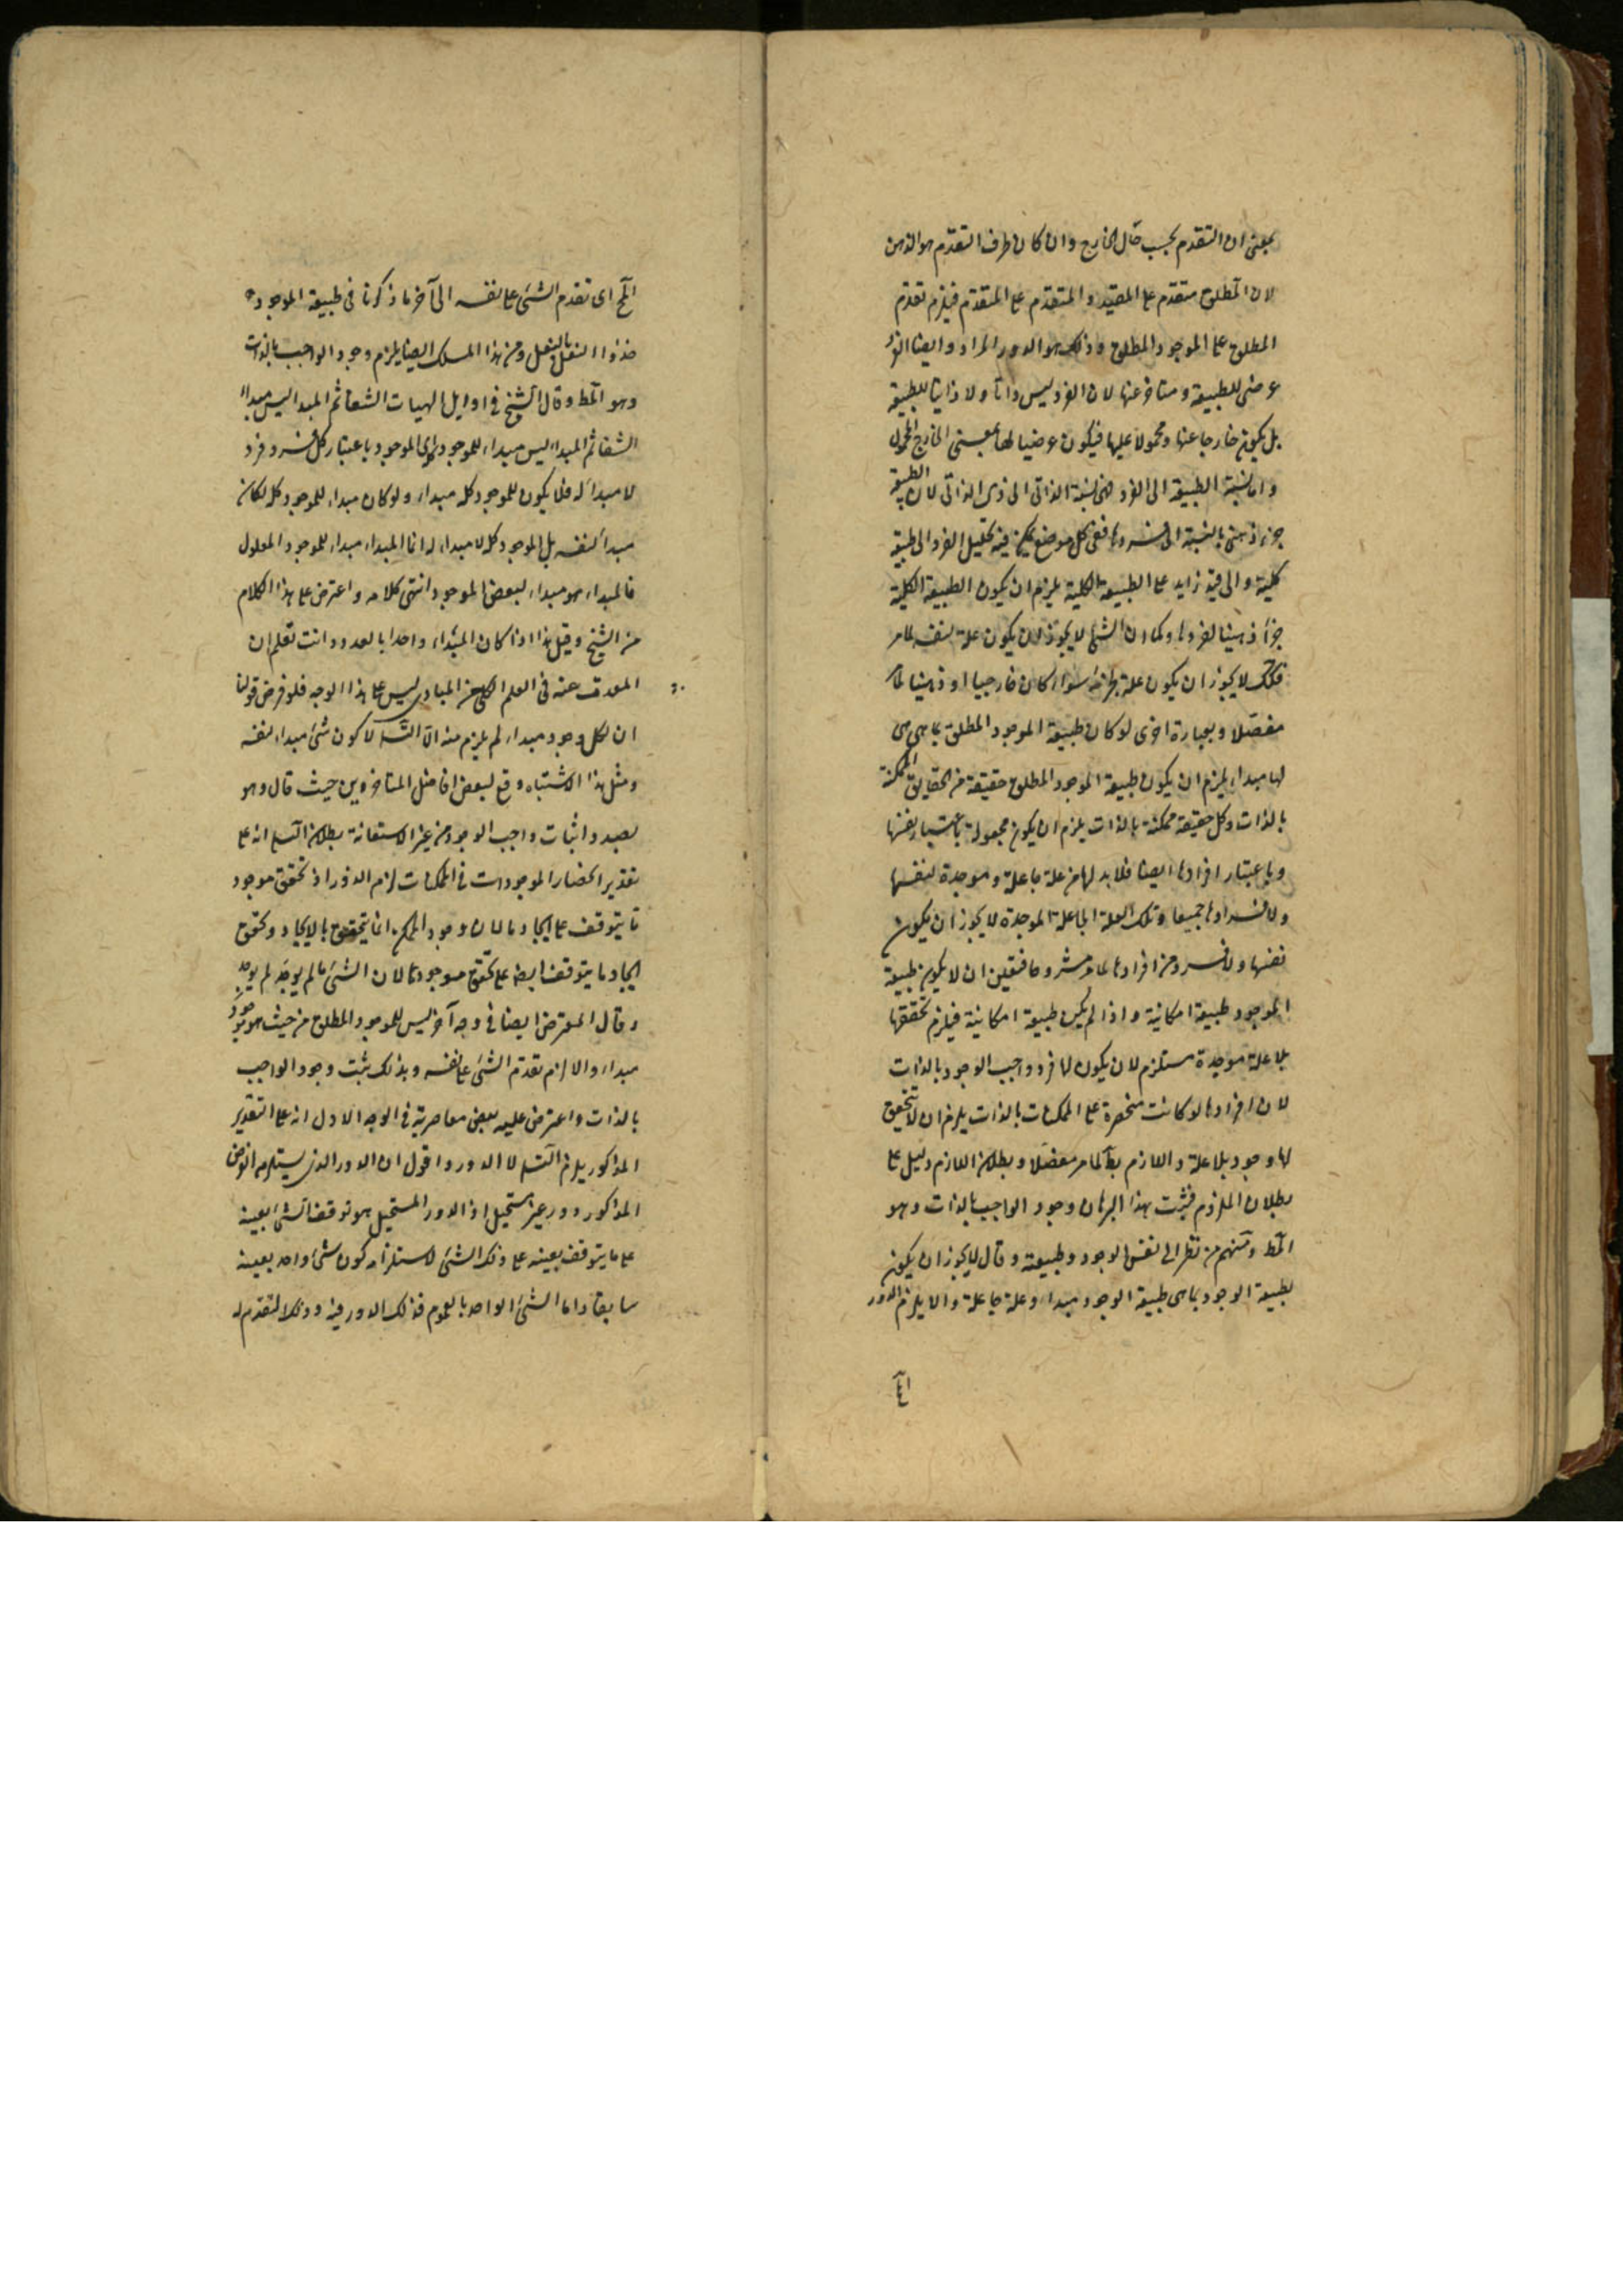 بمعنى ان التقدم بحسب حال الخارج وان كان ظرف التقدم هو الذهن
لان المطلق متقدم على المقيد والمتقدم على المتقدم فيلزم تقدم
المطلق على الموجود المطلق وذلك هو الدور المراد وايضا الفرد
عرضى للطبيعة ومتاخر عنها لان الفرد ليس ذاتا ولا ذاتيا للطبيعة
بل يكون خارجا عنها ومحمولا عليها فيكون عرضيا لها بمعنى الخارج المحمول
واما نسبة الطبيعة الى الفرد فهى نسبة الذاتى الى ذى الذاتى لان الطبيعة
جزء ذهنى بالنسبة الى فردها ففى كل موضع يمكن فيه تحليل الفرد الى طبيعة
كلية والى قيد زايد على الطبيعة الكلية يلزم ان يكون الطبيعة الكلية
جزأ ذهنيا لفردها وكما ان الشئ لا يجوز لان يكون علة لنفسه لما مر
فكك لا يجوز ان يكون علة لجزئه سواء كان خارجيا او ذهنيا لما مر
مفصلا وبعبارة اخرى لو كان طبيعة الموجود المطلق بما هى هى
لها مبداء يلزم ان يكون طبيعة الموجود المطلق حقيقة من الحقايق الممكنة
بالذات وكل حقيقة ممكنة بالذات يلزم ان يكون مجعولة باعتبار نفسها
وباعتبار افرادها ايضا فلابد لها من علة جاعلة وموجدة لنفسها
ولافرادها جميعا وتلك العلة الجاعلة الموجدة لا يجوز ان يكون
نفسها ولا فرد من افرادها لما مر مشروحا فتعين ان لا يكون طبيعة
الموجود طبيعة امكانية واذا لم يكن طبيعة امكانية فيلزم تحققها
بلا علة موجدة مستلزم لان يكون لها فرد واجب الوجود بالذات
لان افرادها لو كانت منحصرة على الممكنات بالذات يلزم ان لا يتحقق
لها وجود بلا علة واللازم بط لما مر مفصلا وبطلان اللازم دليل على
بطلان الملزوم فيثبت بهذا البرهان وجود الواجب بالذات وهو
المط ومنهم من نظر الى نفس الوجود وطبيعته وقال لا يجوز ان يكون
لطبيعة الوجود بما هى طبيعة الوجود مبداء وعلة جاعلة والا يلزم الدور
المح اى تقدم الشئ على نفسه الى آخر ما ذكرنا فى طبيعة الموجود
حذو النعل بالنعل ومن هذا المسلك ايضا يلزم وجود الواجب بالذات
وهو المط وقال الشيخ فى اوايل الهيات الشفا ثم المبدا ليس مبداء
الشفا ثم المبداء ليس مبداء للموجود كله اى الموجود باعتبار كل فرد فرد
لا مبداء له فلا يكون للموجود كله مبداء ولو كان مبداء للموجود كله لكان
مبداء لنفسه بل الموجود كله لا مبداء له انما المبداء مبداء للموجود المعلول
فالمبداء هو مبداء لبعض الموجود انتهى كلامه واعترض على هذا الكلام
من الشيخ وقيل هذا اذا كان المبداء واحدا بالعدد وانت تعلم ان
المبحوث عنه فى العلم الكلى من المبادى ليس على هذا الوجه فلو فرض قولنا
ان لكل وجود مبداء لم يلزم منه الا التسلسل لا كون شئ مبداء لنفسه
ومثل هذا الاشتباه وقع لبعض افاضل المتاخرين حيث قال وهو
بصدد اثبات واجب الوجود من غير الاستعانة ببطلان التسلسل انه على
تقدير انحصار الموجودات فى الممكنات لزم الدور اذ تحقق موجود
ما يتوقف على ايجاد ما لان وجود الممكن انما يتحقق بالايجاد وتحقق
ايجاد ما يتوقف ايضا على تحقق موجود ما لان الشئ ما لم يوجد لم يوجد
وقال المعترض ايضا فى وجه آخر ليس للموجود المطلق من حيث هو موجود
مبداء والا لزم تقدم الشئ على نفسه وبذلك يثبت وجود الواجب
بالذات واعترض عليه بعض معاصريه فى الوجه الاول انه على التقدير
المذكور يلزم التسلسل لا الدور واقول ان الدور الذى يستلزمه الفرض
المذكور دور غير مستحيل اذ الدور المستحيل هو توقف الشئ بعينه
على ما يتوقف بعينه على ذلك الشئ لاستلزامه كون شئ واحد بعينه
سابقا واما الشئ الواحد بالعموم فذلك الدور فيه وذلك التقدم له